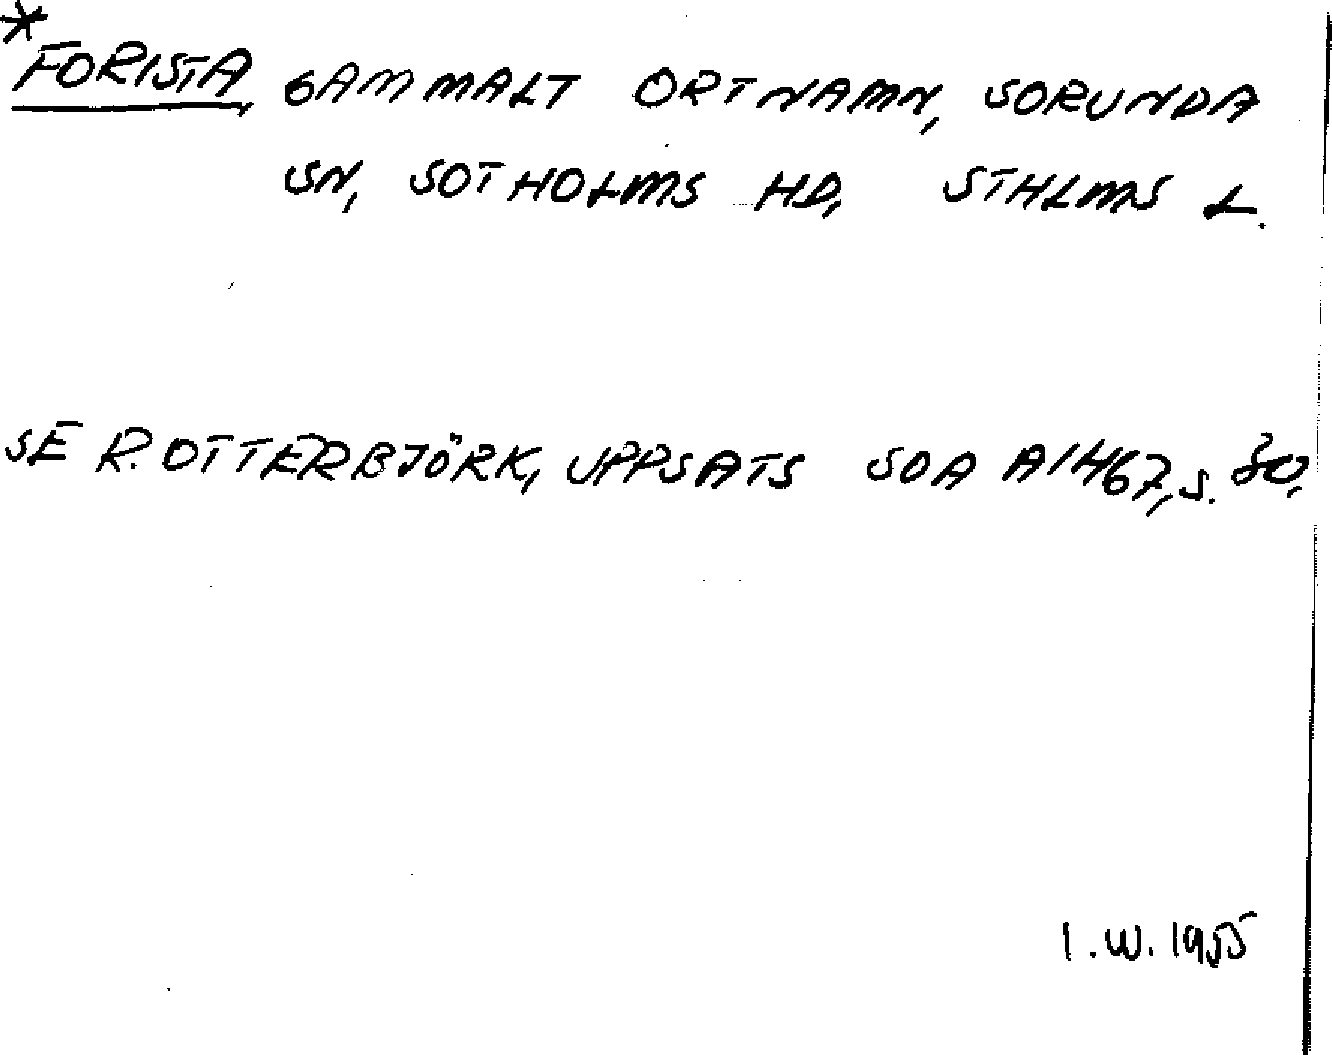 *FORISTA, GAMMALT ORTNAMN, SORUNDA
SN, SOTHOLMS HD, STHLMS L.
SE R. OTTERBJÖRK, UPPSATS SOA A1467, S. 80.
I.W. 1955